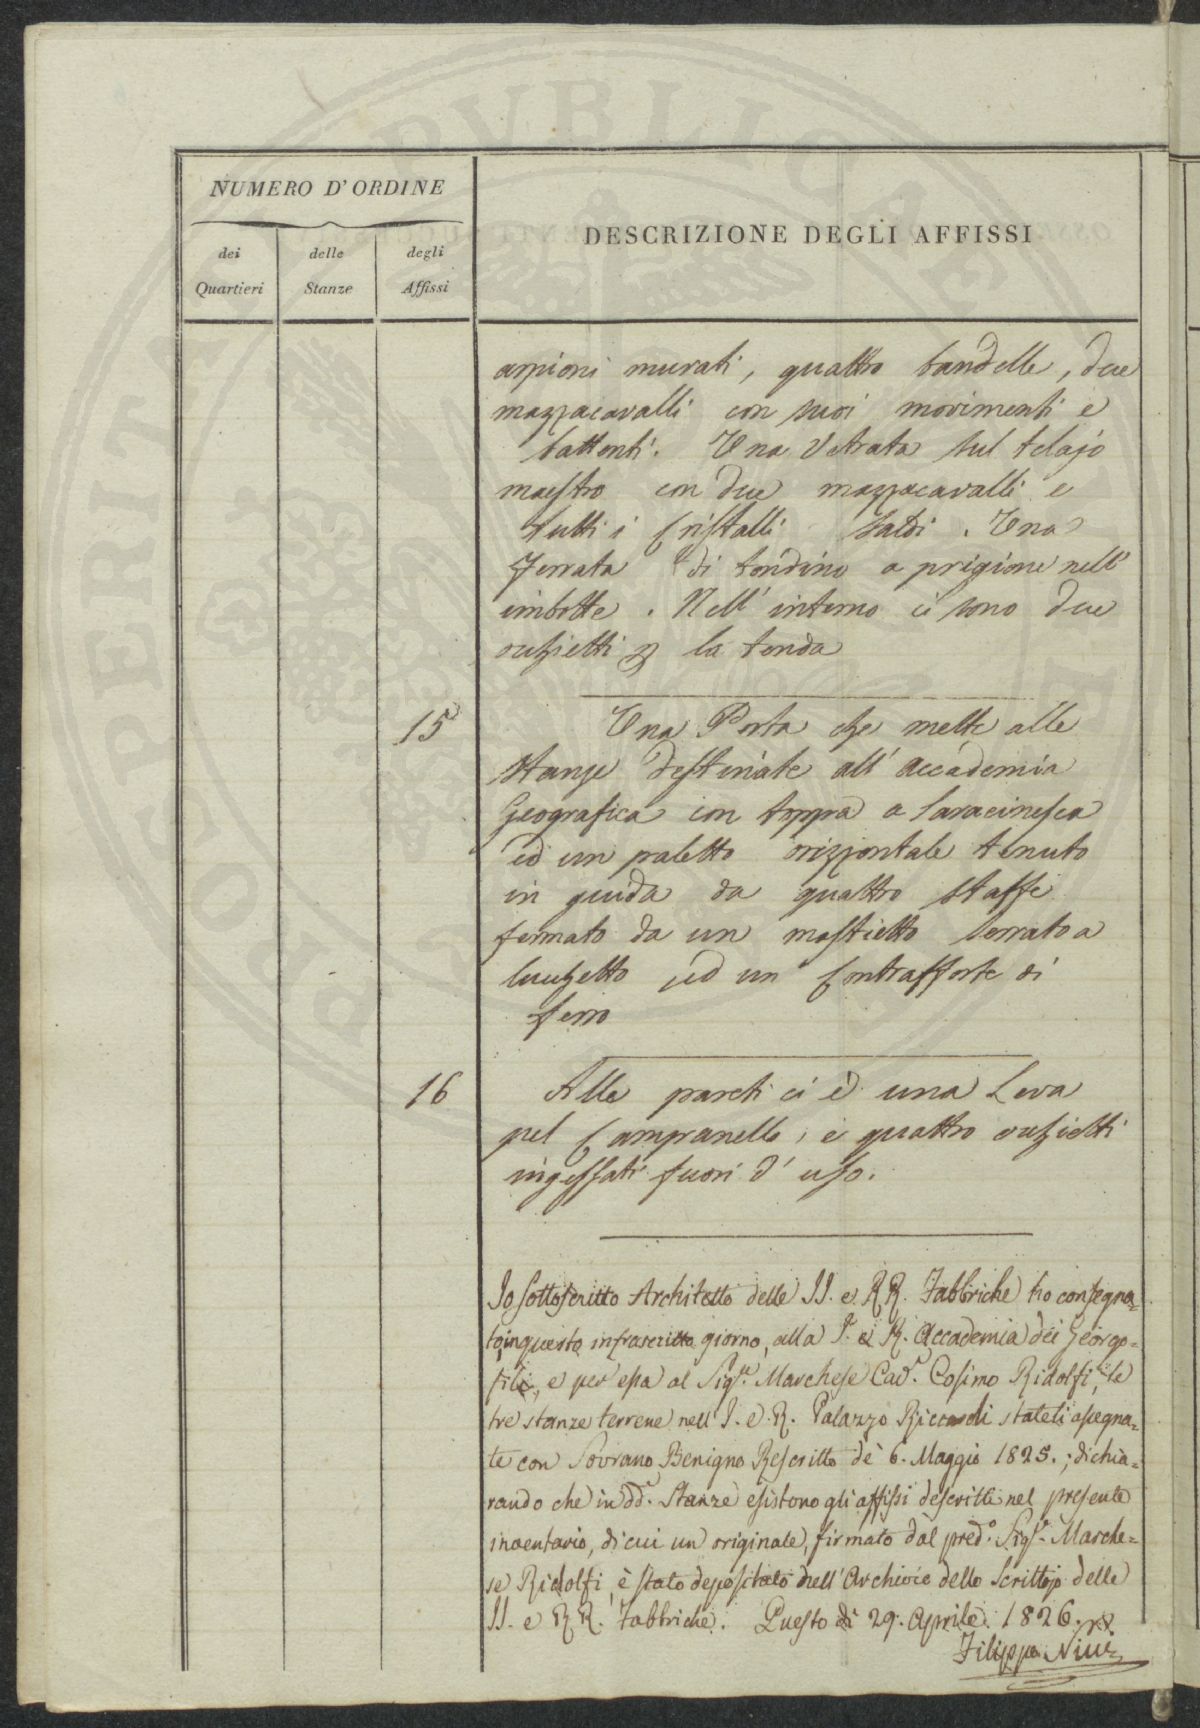 NUMERO D'ORDINE
dei Quartieri
delle Stanze
degli Affissi
DESCRIZIONE DEGLI AFFISSI
arpioni murati, quattro bandelle, due
mazzacavalli con suoi movimenti e
battenti. Una Vetrata sul telajo
maestro con due mazzacavalli e
tutti i Cristalli saldi. Una
ferrata di tondino a prigione nell'
imbotte. Nell' interno ci sono due
occhietti p la tenda
15 Una Porta che mette alle
Stanze destinate all' Accademia
Geografica con toppa a saracinesca
ed un paletto orizzontale tenuto
in guida da quattro staffe
fermato da un mastietto serrato a
lucchetto ed un Contrafforte di
ferro
16 Alle pareti ci è una Leva
pel Campanello, e quattro occhietti
ingessati fuori d' uso.
Io sottoscritto Architetto delle II. e RR. Fabbriche ho consegna=
to, in questo infrascritto giorno, alla I. e R. Accademia dei Georgo=
fili, e per essa al Sig.e Marchese Cav.e Cosimo Ridolfi, le
tre stanze terrene nell' I. e R. Palazzo Riccardi stateli assegna=
te con Sovrano Benigno Rescritto de' 6. Maggio 1825.; dichia=
rando che in dd.e Stanze esistono gli affissi descritti nel presente
inventario, di cui un originale, firmato dal pred.o Sig.e Marche=
se Ridolfi, è stato depositato nell' Archivio dello Scrittojo delle
II. e RR. Fabbriche. Questo dì 29. Aprile 1826.
Filippo
POPVLI
PVBLICAE